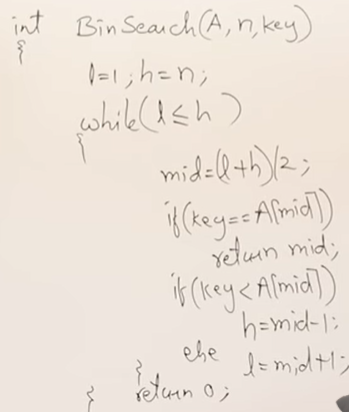 int BinSearch(A, n, key)
{
l=1; h=n;
while(l≤h)
{
mid=(l+h)/2;
if(key==A[mid])
return mid;
if(key<A[mid])
h=mid-1;
else l=mid+1;
}
return 0;
}